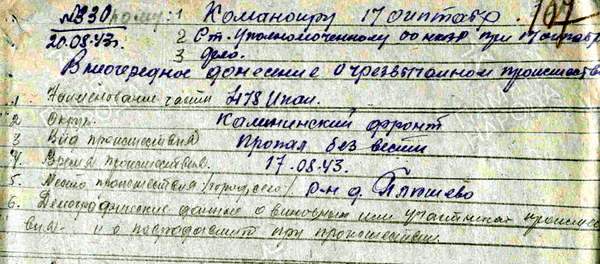 №330 Кому: 1 Командиру 17 оиптабр 107
20.08.43г. 2 Ст. Уполномоченному оо нквд при 17 оиптабр
3 дело.
Внеочередное донесение о чрезвычайном происшестви
1 Наименование части 478 Ипап.
2 Округ. Калининский фронт
3 Вид происшествия Пропал без вести
4. Время происшествия. 17.08.43.
5. Место происшествия /город, село/ р-н д.
6. Демографические данные о виновных или участниках происшес
вия. и о пострадавших при происшествии.